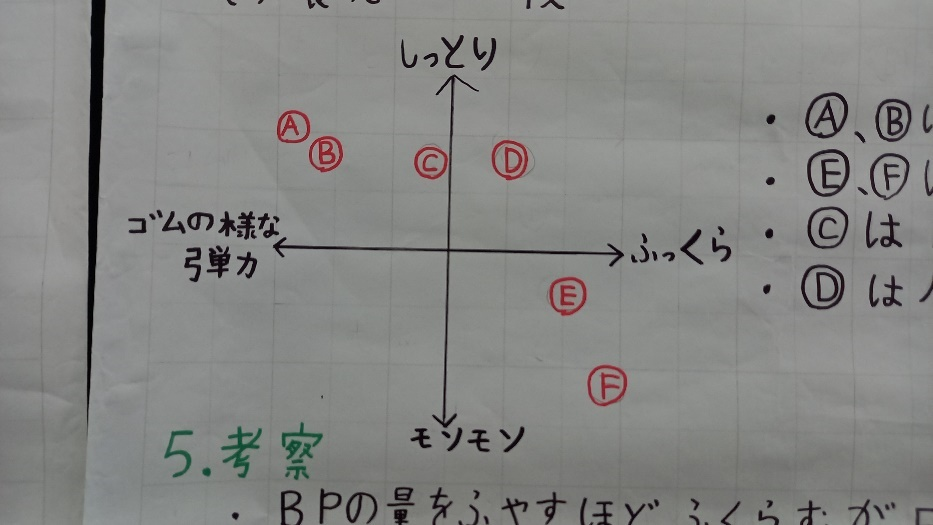 しっとり
Ⓐ
Ⓑ Ⓒ Ⓓ
ゴムの様な
弓単力
ふっくら
Ⓔ
Ⓕ
モソモソ
・Ⓐ、Ⓑ
・Ⓔ、Ⓕ
・Ⓒは
・Ⓓは
5.考察
・BPの量をふやすほどふくらむが